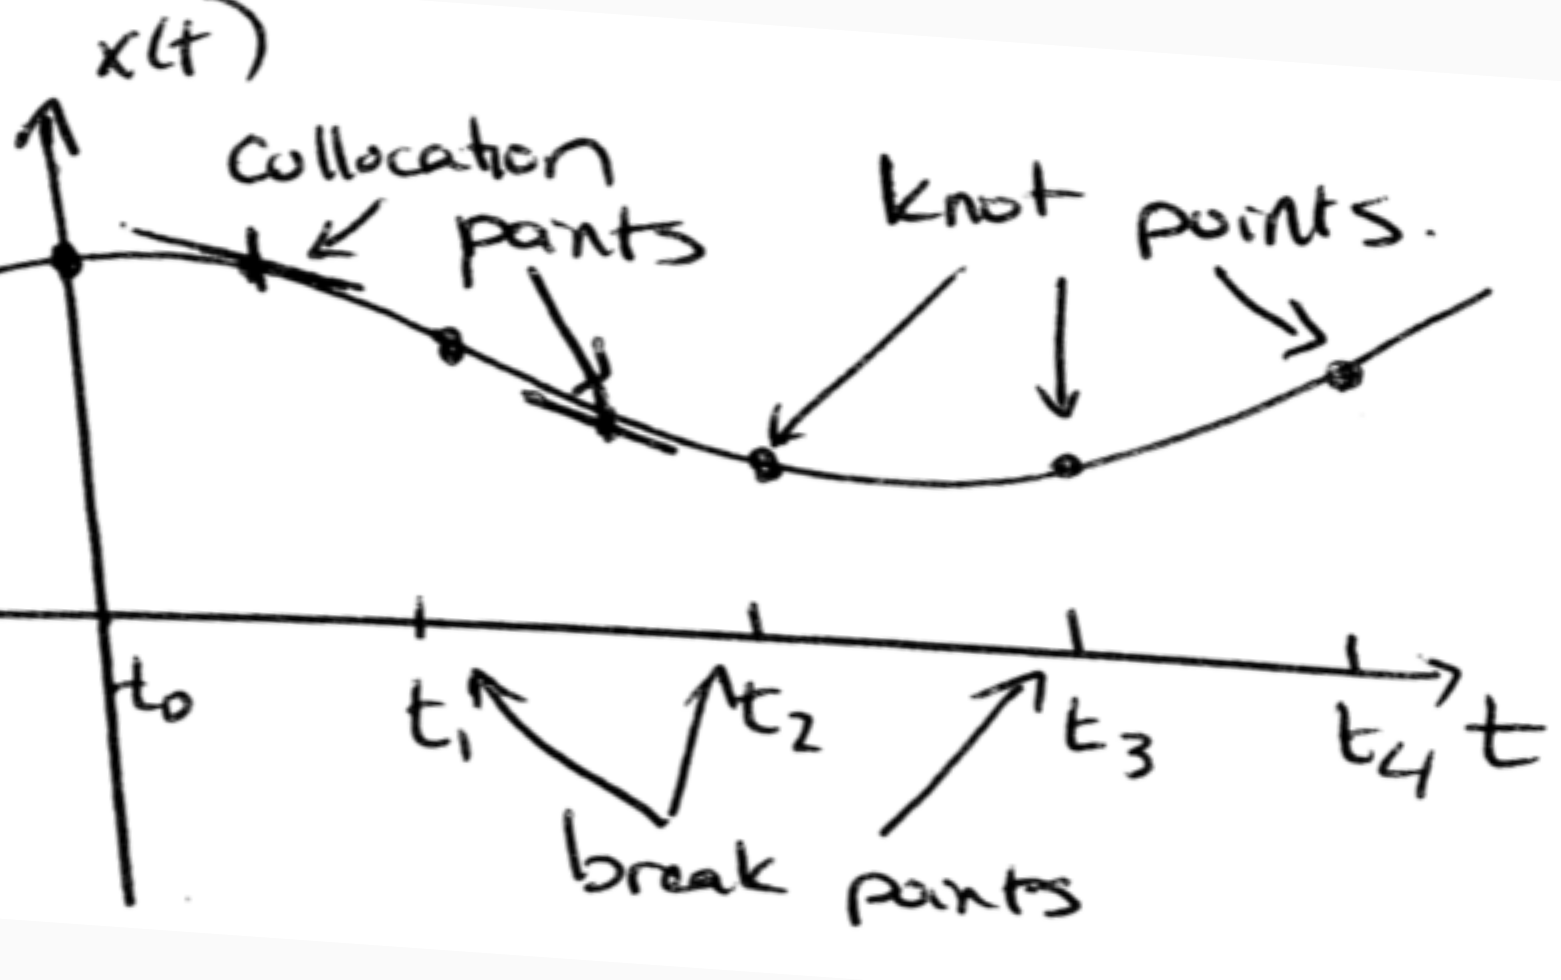 x(t)
collocation
points
knot points.
t₀
t₁
t₂
t₃
t₄
t
break points